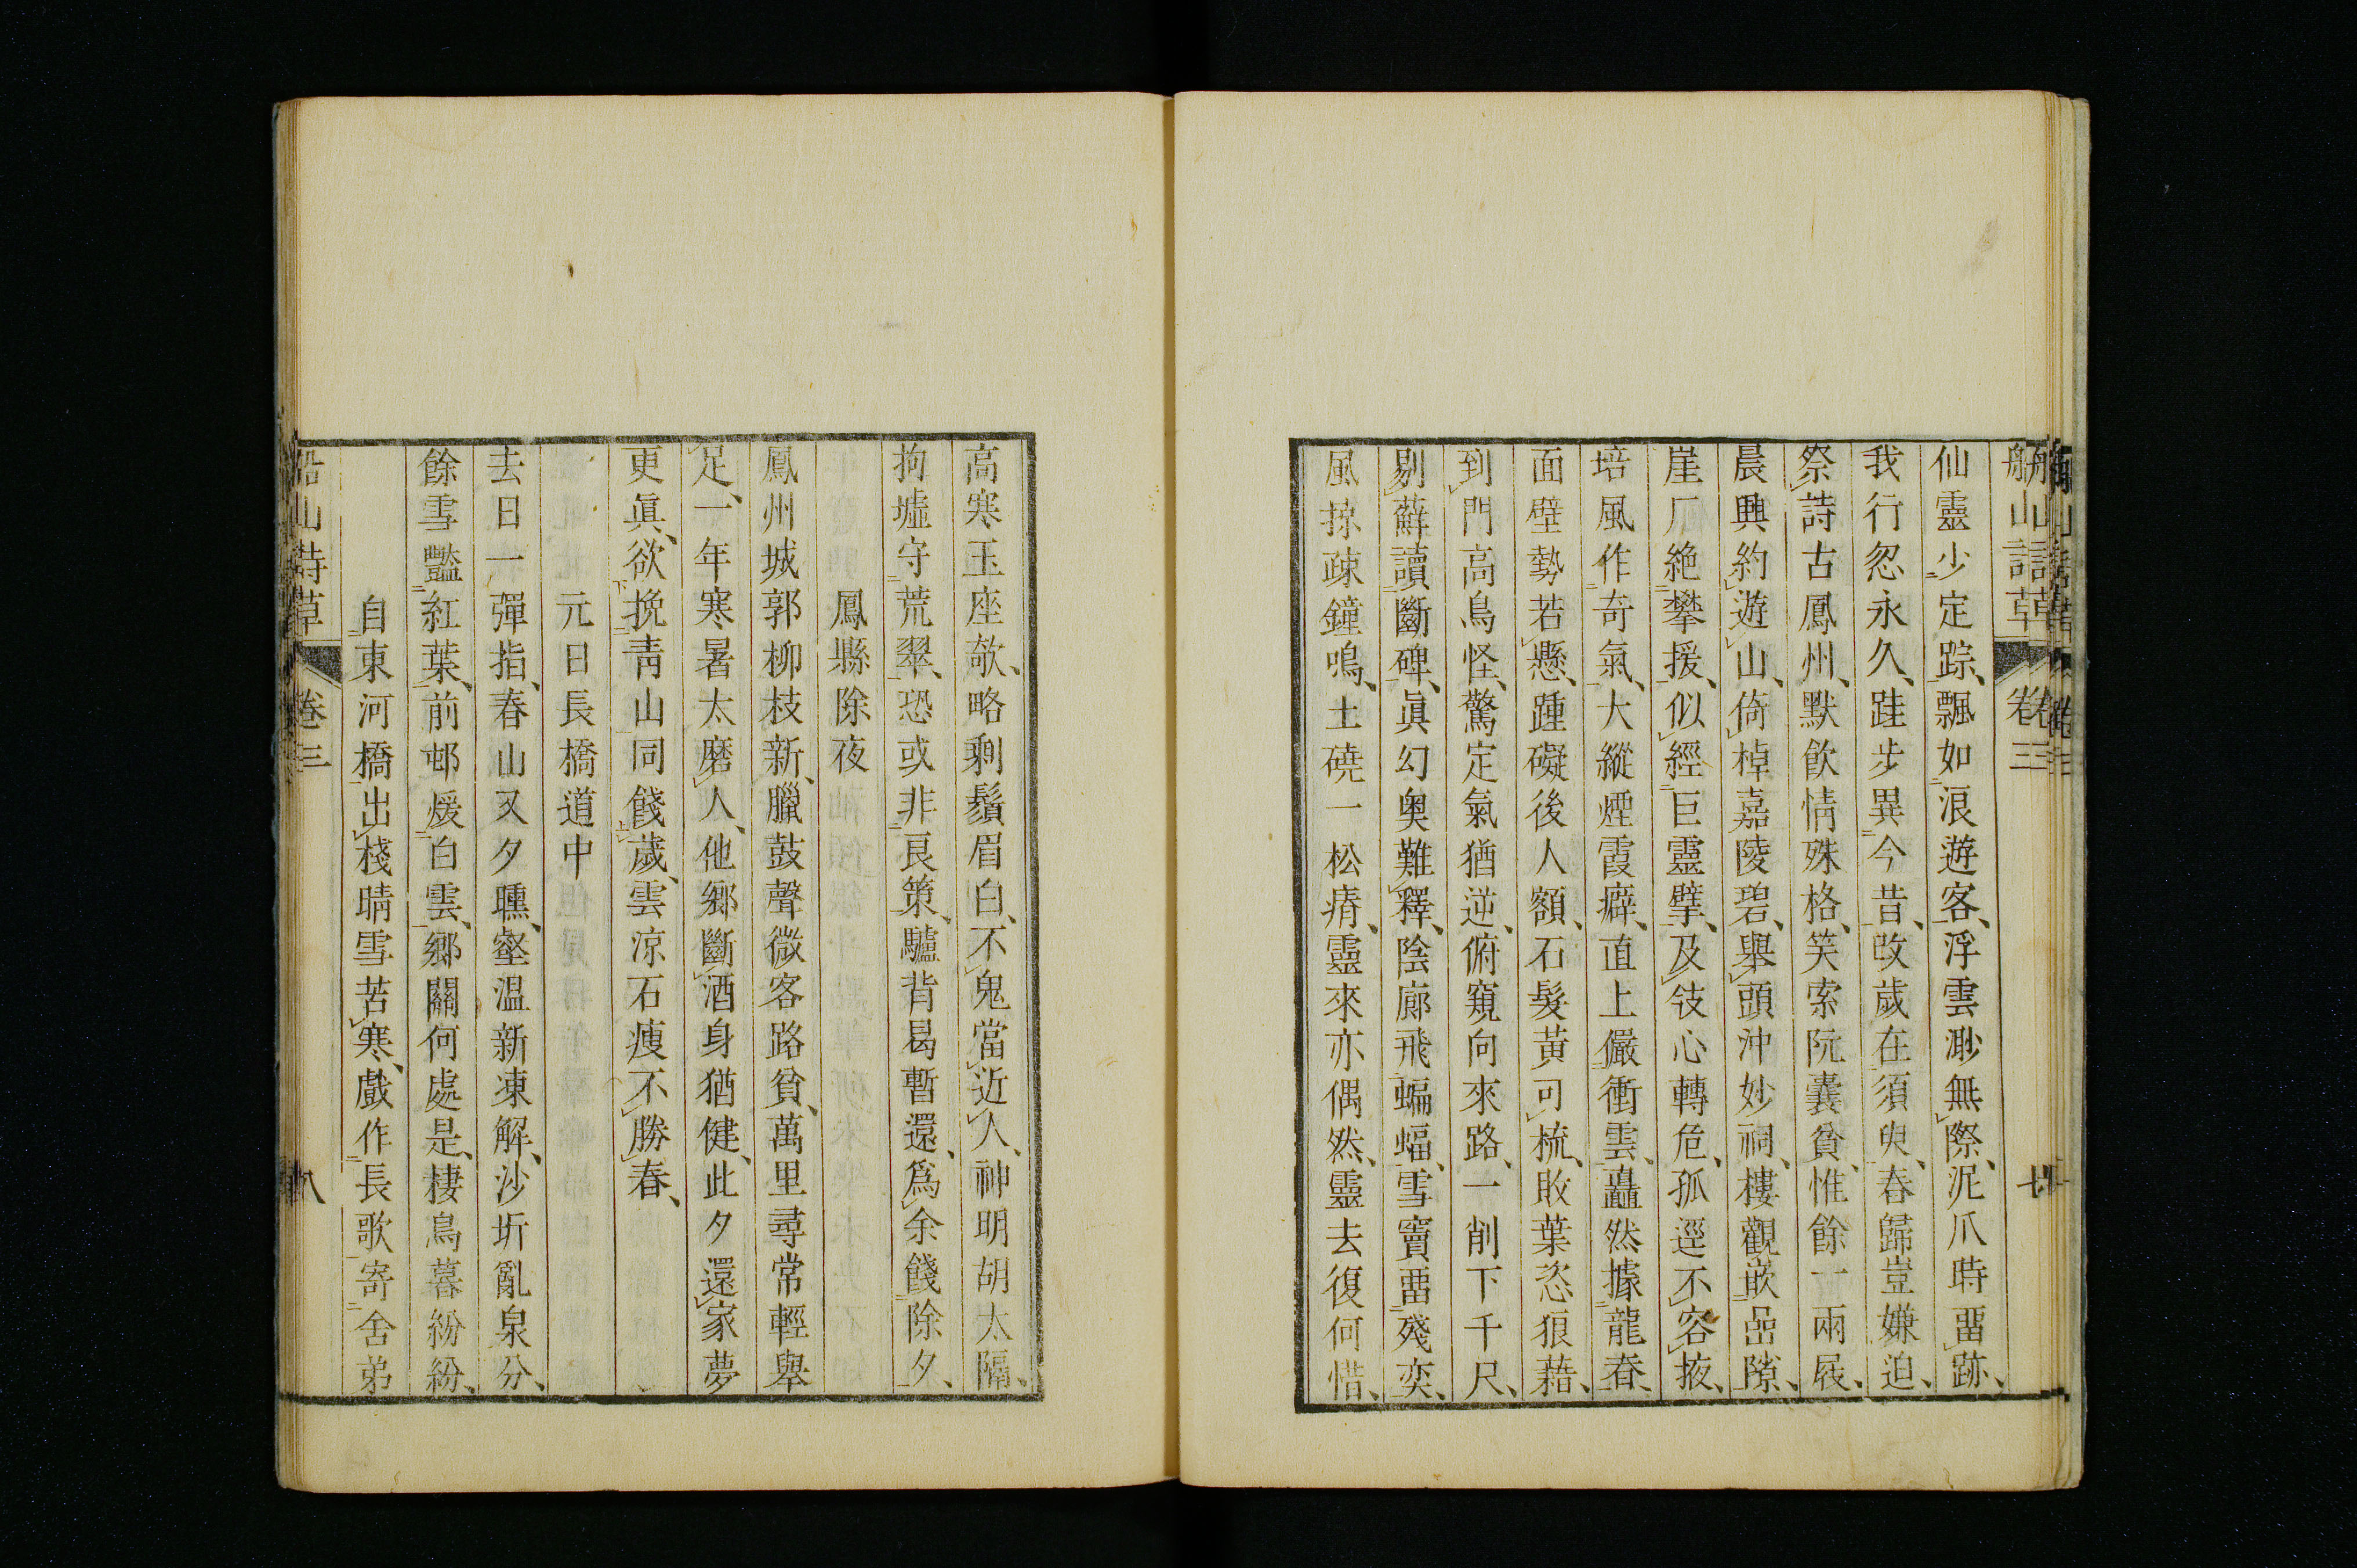 船山詩草 卷三 七
仙靈少定踪、飄如浪遊客、浮雲渺無際、泥爪時畱跡、
我行忽永久、跬步異今昔、改歲在須臾、春歸豈嫌迫、
祭詩古鳳州、默飲情殊格、笑索阮囊貧、惟餘一兩屐、
晨興約遊山、倚棹嘉陵碧、舉頭沖妙祠、樓觀嵌嵒隙、
崖厂絶攀援、似經巨靈擘、及攱心轉危、孤逕不容掖、
培風作奇氣、大縱煙霞癖、直上儼衝雲、矗然據龍脊、
面壁勢若懸、踵礙後人額、石髮黃可梳、敗葉恣狼藉、
到門高鳥怪、驚定氣猶逆、俯窺向來路、一削下千尺、
剔蘚讀斷碑、眞幻奥難釋、陰廊飛蝙蝠、雪竇畱殘奕、
風掠疎鐘鳴、土磽一松瘠、靈來亦偶然、靈去復何惜、
高寒玉座欹、略剩鬚眉白、不鬼當近人、神明胡太隔、
拘墟守荒翠、恐或非艮策、驢背曷暫還、爲余餞除夕、
鳳縣除夜
鳳州城郭柳枝新、臘鼓聲微客路貧、萬里尋常輕舉
足、一年寒暑太磨人、他鄉斷酒身猶健、此夕還家夢
更眞、欲挽靑山同餞歲、雲凉石瘦不勝春、
元日長橋道中
去日一彈指、春山又夕曛、壑温新凍解、沙圻亂泉分、
餘雪豔紅葉、前邨煖白雲、鄉關何處是、棲鳥暮紛紛、
自東河橋出棧晴雪苦寒、戲作長歌寄舍弟
船山詩草 卷三 八